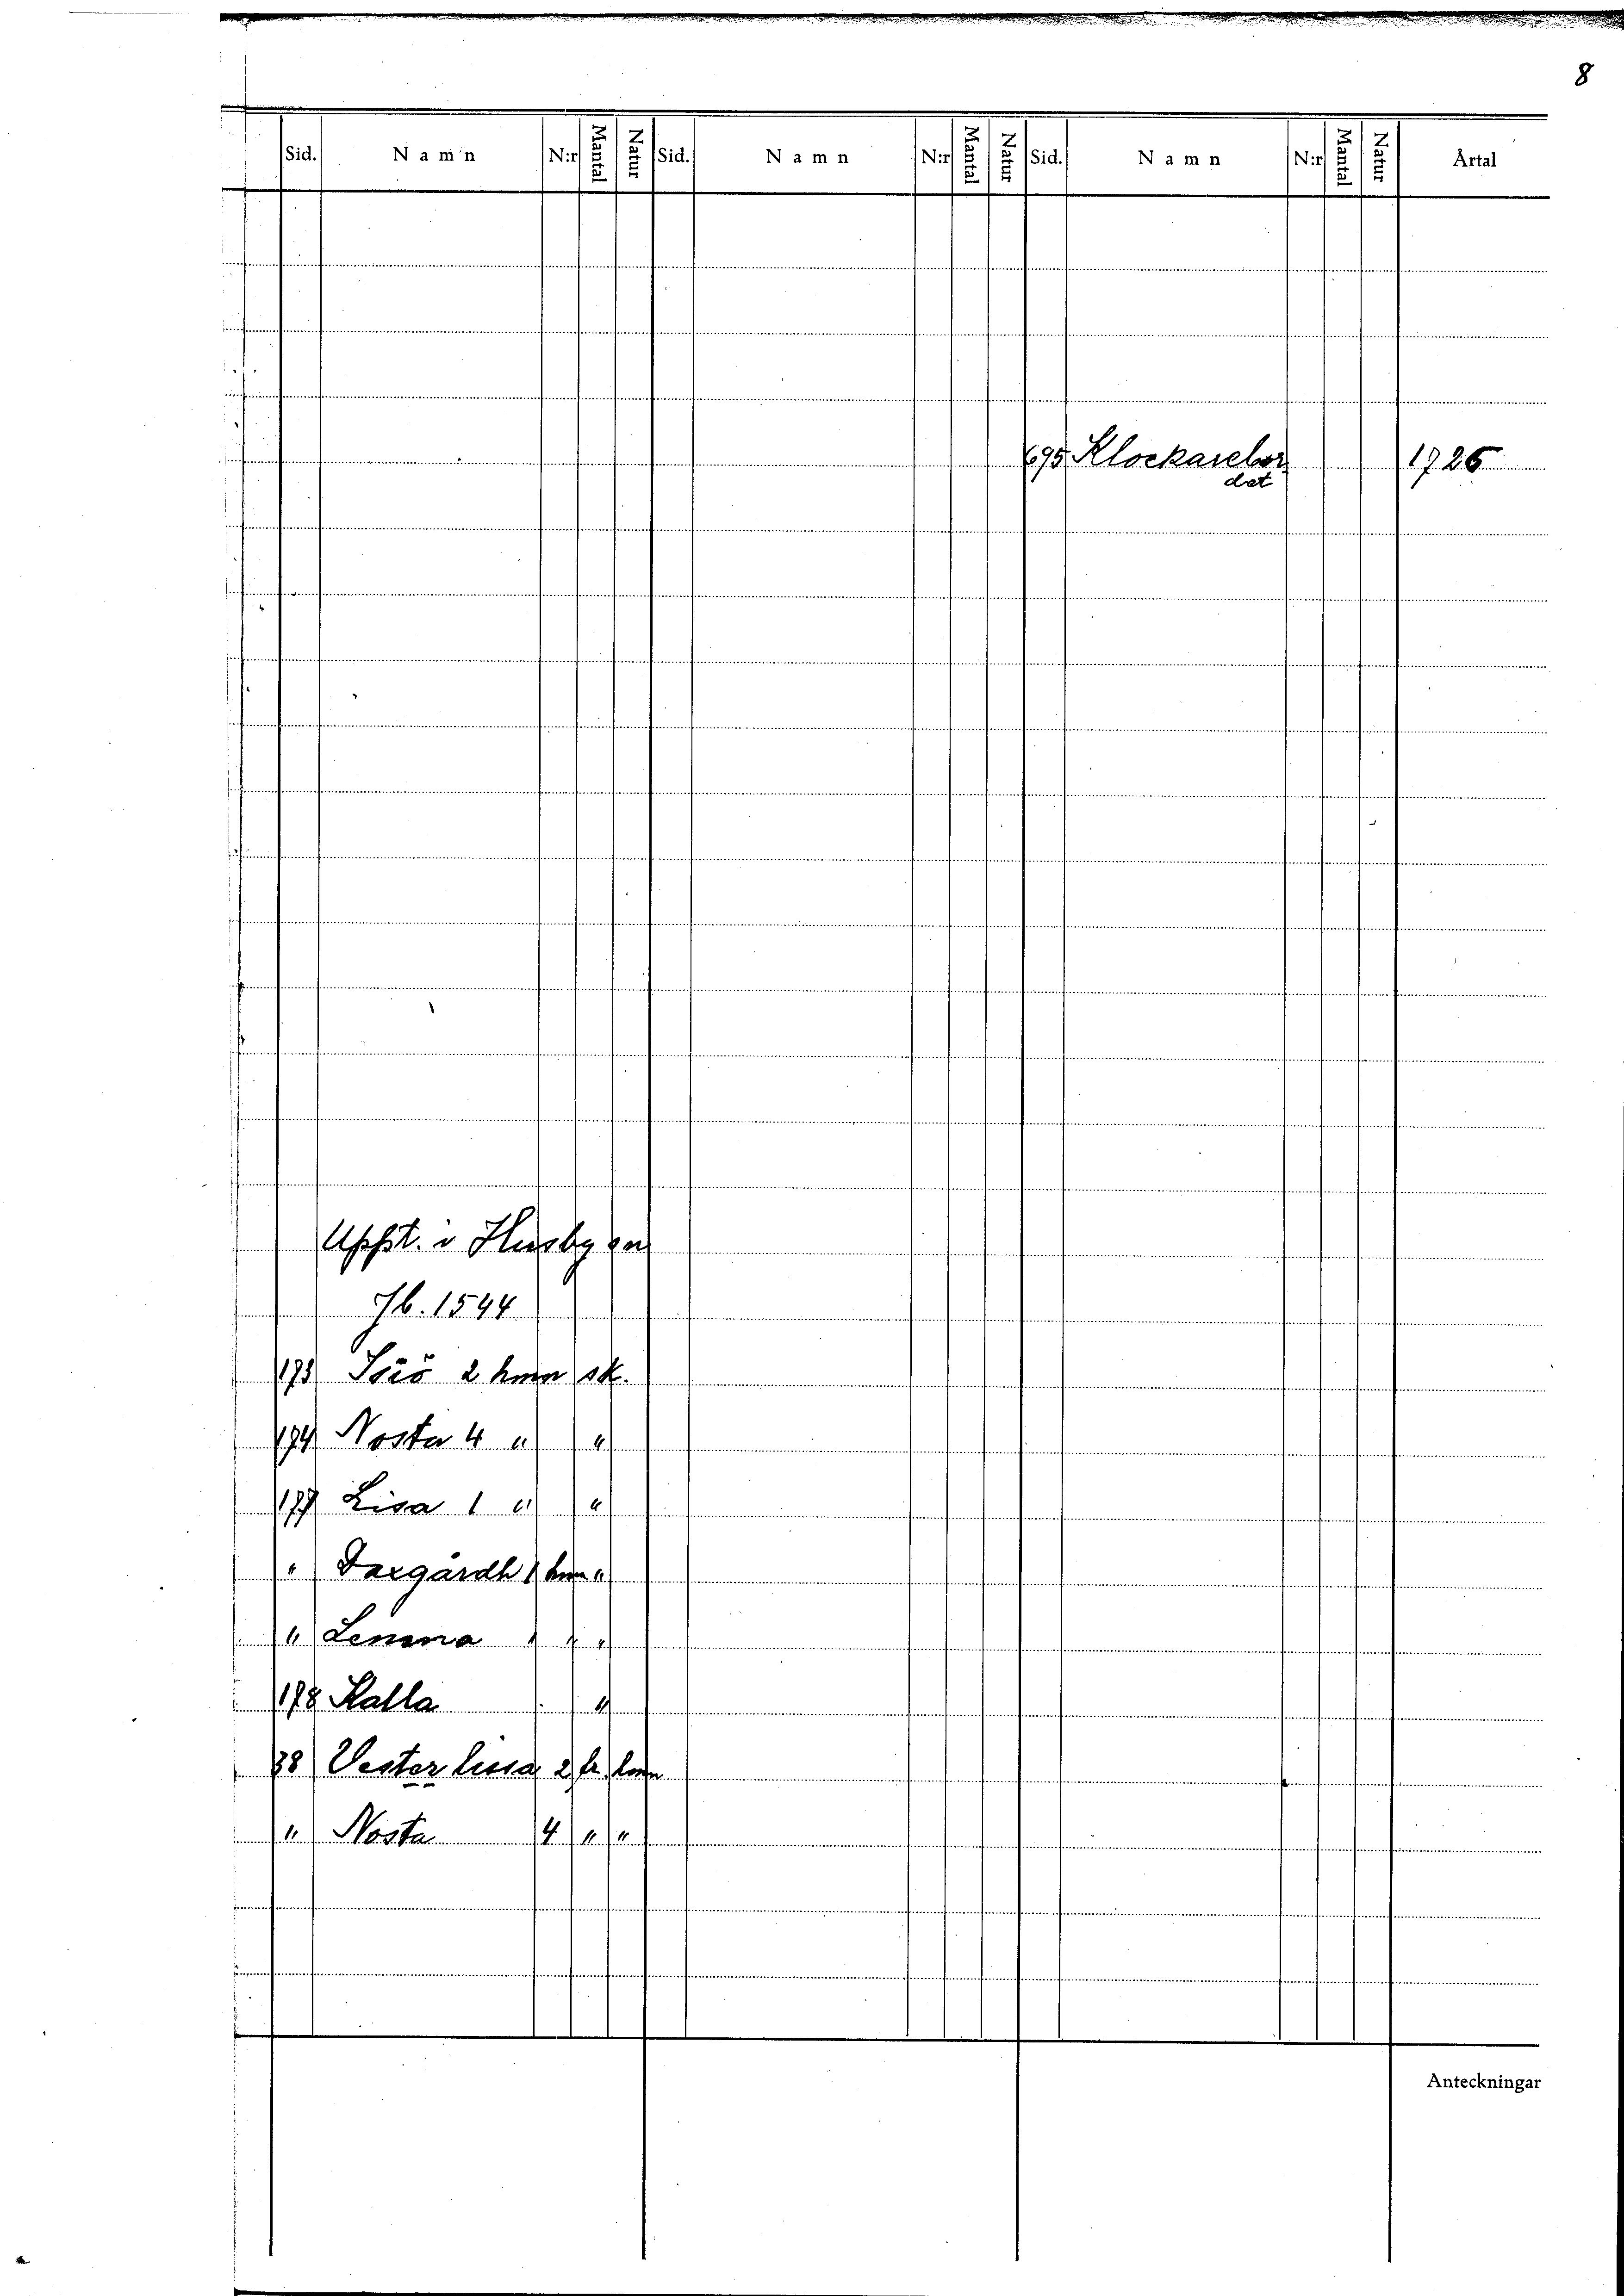 8
Sid. Namn N:r Mantal Natur Sid. Namn N:r Mantal Natur Sid. Namn N:r Mantal Natur Årtal
695 Klockarebor 1726
det
Uppt. i Husby sn
Jb. 1544
173 2 hmn sk.
174 Nosta 4 " "
177 Lisa 1 " "
" Daxgårdh 1 hmn "
" Lemna 1 " "
178 Kalla "
38 Vester lissa 2 fr. hmn
" Nosta 4 " "
Anteckningar